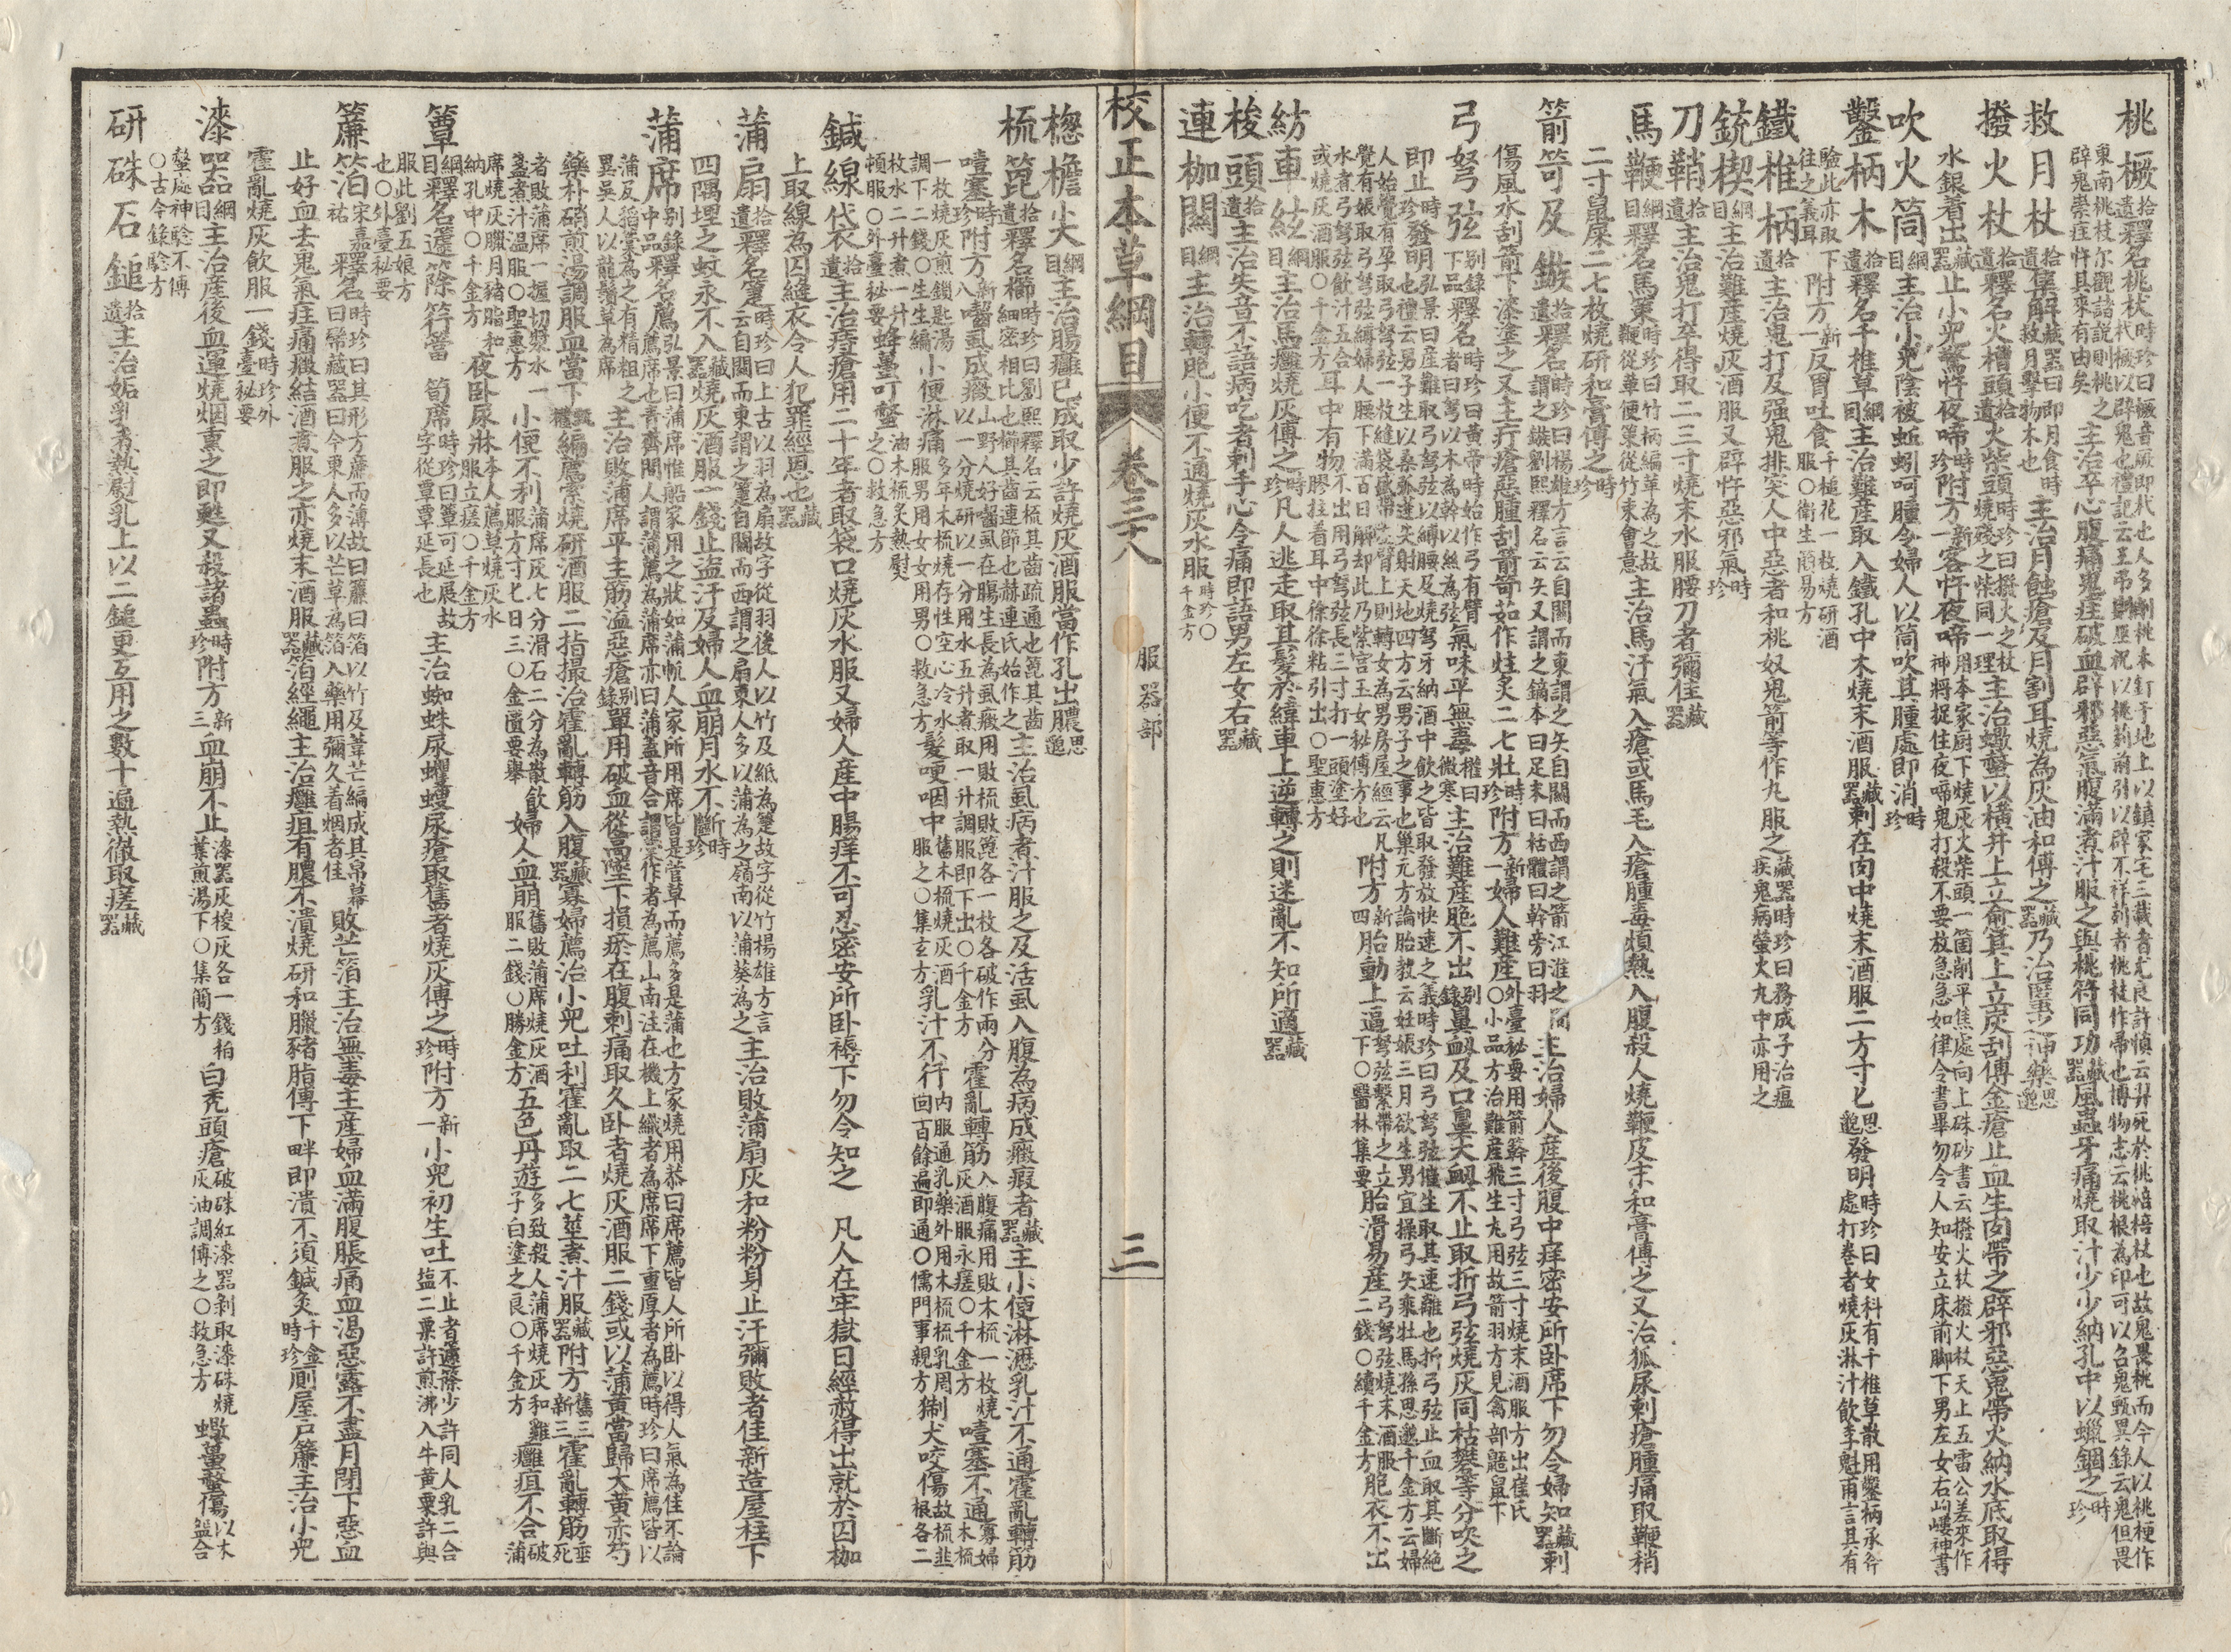 桃橛拾遺釋名桃杙時珍曰橛音厥即杙也人多削桃木釘于地上以鎮家宅三載者尤良許慎云羿死於桃棓棓杖也故鬼畏桃而今人以桃梗作杙橛以辟鬼也禮記云王弔則巫祝以桃茢前引以辟不祥茢者桃枝作帚也博物志云桃根為印可以召鬼甄異錄云鬼但畏
東南桃枝尔觀諸說則桃之辟鬼祟疰忤其來有由矣主治卒心腹痛鬼疰破血辟邪惡氣腹滿者汁服之與桃符同功藏器風蟲牙痛燒取汁少少納孔中以蠟錮之時珍
救月杖拾遺集解藏器曰即月食時救月擊物木也主治月蝕瘡及月割耳燒為灰油和傅之藏器乃治䘌之神藥思邈
撥火杖拾遺釋名火槽頭拾遺火柴頭時珍曰撥火之杖燒殘之柴同一理主治蠍螫以橫井上立愈其上立炭刮傅金瘡止血生肉帶之辟邪惡鬼帶火納水底取得
水銀着出藏器止小兒驚忤夜啼時珍附方新一客忤夜啼用本家厨下燒灰火柴頭一箇削平焦處向上硃砂書云撥火杖撥火杖天上五雷公差來作神將捉住夜啼鬼打殺不要放急急如律令書畢勿令人知安立床前脚下男左女右岣嶁神書
吹火筒綱目主治小兒陰被蚯蚓呵腫令婦人以筒吹其腫處即消時珍
鑿柄木拾遺釋名千椎草綱目主治難產取入鐵孔中木燒末酒服藏器刺在肉中燒末酒服二方寸匕思邈發明時珍曰女科有千椎草散用鑿柄承斧處打卷者燒灰淋汁飲李魁甫言其有
驗此亦取下往之義耳附方新一反胃吐食千槌花一枚燒研酒服〇衛生易方
鐵椎柄拾遺主治鬼打及强鬼排突人中惡者和桃奴鬼箭等作丸服之藏器時珍曰務成子治瘟疾鬼病螢火丸中亦用之
銃楔綱目主治難產燒灰酒服又辟忤惡邪氣時珍
刀鞘拾遺主治鬼打卒得取二三寸燒末水服腰刀者彌佳藏器
馬鞭綱目釋名馬策時珍曰竹柄編革為之故鞭從革便策從竹朿會意主治馬汗氣入瘡或馬毛入瘡腫毒煩熱入腹殺人燒鞭皮末和膏傅之又治狐尿刺瘡腫痛取鞭稍
二寸鼠屎二七枚燒研和膏傅之時珍
箭笴及鏃拾遺釋名時珍曰揚雄方言云自關而東謂之矢自關而西謂之箭江淮之間謂之鏃劉熙釋名云矢又謂之鏑本曰足末曰栝體曰幹旁曰羽主治婦人產後腹中痒密安所卧席下勿令婦知藏器刺
傷風水刮箭下漆塗之又主疔瘡惡腫刮箭笴茹作炷炙二七壯時珍附方新一婦人難產外臺秘要用箭幹三寸弓弦三寸燒末酒服方出崔氏〇小品方治難產飛生丸用故箭羽方見禽部鼯鼠下
弓弩弦別錄下品釋名時珍曰黃帝時始作弓有臂者曰弩以木為幹以絲為弦氣味平無毒權曰微寒主治難產胞不出別錄鼻衄及口鼻大衄不止取折弓弦燒灰同枯礬等分吹之
即止時珍發明弘景曰產難取弓弩弦以縛腰及燒弩牙納酒中飲之皆取發放快速之義時珍曰弓弩弦催生取其速離也折弓弦止血取其斷絕也禮云男子生以桑弧蓬矢射天地四方云男子之事也巢元方論胎教云妊娠三月欲生男宜操弓矢乘牡馬孫思邈千金方云婦
人始覺有孕取弓弩弦一枚縫袋盛帶左臂上則轉女為男房屋經云凡覺有娠取弓弩弦縛婦人腰下滿百日解却此乃紫宮玉女秘傳方也附方新四胎動上逼弩弦繫帶之立下〇醫林集要胎滑易產弓弩弦燒末酒服二錢〇續千金方胞衣不出
水煮弓弩弦飲汁五合或燒灰酒服〇千金方耳中有物不出用弓弩弦長三寸打一頭塗好膠拄着耳中徐徐粘引出〇聖惠方
紡車絃綱目主治馬癰燒灰傅之時珍凡人逃走取其髮於緯車上逆轉之則迷亂不知所適藏器
梭頭拾遺主治失音不語病吃者刺手心令痛即語男左女右藏器
連枷關綱目主治轉胞小便不通燒灰水服時珍〇千金方
校正本草綱目
卷三十八
服器部
三
楤檐尖綱目主治腸癰已成取少許燒灰酒服當作孔出膿思邈
梳篦拾遺釋名櫛時珍曰劉熙釋名云梳其齒疏通也篦其齒細密相比也櫛其齒連節也赫連氏始作之主治虱病煮汁服之及活虱入腹為病成癥瘕者藏器主小便淋瀝乳汁不通霍亂轉筋
噎塞時珍附方新八嚙虱成癥山野人好嚙虱在腹生長為虱癥用敗梳敗篦各一枚各破作兩分以一分燒研以一分用水五升煮取一升調服即下出〇千金方霍亂轉筋入腹痛用敗木梳一枚燒灰酒服永瘥〇千金方噎塞不通寡婦木梳
一枚燒灰煎鎖匙湯調下二錢〇生生編小便淋痛多年木梳燒存性空心冷水服男用女女用男〇救急方髮哽咽中舊木梳燒灰酒服之〇集玄方乳汁不行內服通乳藥外用木梳梳乳周回百餘遍即通〇儒門事親方猘犬咬傷故梳韭根各二
枚水二升煮一升頓服〇外臺秘要蜂蠆叮螫油木梳炙熱熨之〇救急方
鍼線袋拾遺主治痔瘡用二十年者取袋口燒灰水服又婦人產中腸痒不可忍密安所卧褥下勿令知之　凡人在牢獄日經赦得出就於囚枷
上取線為囚縫衣令人犯罪經恩也藏器
蒲扇拾遺釋名箑時珍曰上古以羽為扇故字從羽後人以竹及紙為箑故字從竹楊雄方言云自關而東謂之箑自關而西謂之扇東人多以蒲為之嶺南以蒲葵為之主治敗蒲扇灰和粉粉身止汗彌敗者佳新造屋柱下
四隅埋之蚊永不入藏器燒灰酒服一錢止盜汗及婦人血崩月水不斷時珍
蒲席別錄中品釋名薦弘景曰蒲席惟船家用之狀如蒲帆人家所用席皆是菅草而薦多是蒲也方家燒用恭曰席薦皆人所卧以得人氣為佳不論薦席也青齊間人謂蒲薦為蒲席亦曰蒲蓋音合謂藁作者為薦山南注在機上織者為席席下重厚者為薦時珍曰席薦皆以
蒲及稻藁為之有精粗之異吳人以龍鬚草為席主治敗蒲席平主筋溢惡瘡別錄單用破血從高墜下損瘀在腹刺痛取久卧者燒灰酒服二錢或以蒲黃當歸大黃赤芍
藥朴硝煎湯調服血當下甄權編薦索燒研酒服二指撮治霍亂轉筋入腹藏器寡婦薦治小兒吐利霍亂取二七莖煮汁服藏器附方舊三新三霍亂轉筋垂死
者敗蒲席一握切漿水一盞煮汁溫服〇聖惠方小便不利蒲席灰七分滑石二分為散飲服方寸匕日三〇金匱要畧婦人血崩舊敗蒲席燒灰酒服二錢〇勝金方五色丹遊多致殺人蒲席燒灰和雞子白塗之良〇千金方癰疽不合破蒲
席燒灰臘月豬脂和納孔中〇千金方夜卧尿牀本人薦草燒灰水服立瘥〇千金方
簟綱目釋名籧篨　符簹　筍席時珍曰簟可延展故字從覃覃延長也主治蜘蛛尿蠼螋尿瘡取舊者燒灰傅之時珍附方新一小兒初生吐不止者籧篨少許同人乳二合塩二粟許煎沸入牛黃粟許與
服此劉五娘方也〇外臺秘要
簾箔宋嘉祐釋名時珍曰其形方廉而薄故曰簾曰箔以竹及葦芒編成其帛幕曰㡘藏器曰今東人多以芒草為箔入藥用彌久着烟者佳敗芒箔主治無毒主產婦血滿腹脹痛血渴惡露不盡月閉下惡血
止好血去鬼氣疰痛癥結酒煮服之亦燒末酒服藏器箔經繩主治癰疽有膿不潰燒研和臘豬脂傅下畔即潰不須鍼灸千金時珍厠屋戶簾主治小兒
霍亂燒灰飲服一錢時珍外臺秘要
漆器綱目主治產後血運燒烟熏之即甦又殺諸蟲時珍附方新三血崩不止漆器灰㯶灰各一錢柏葉煎湯下〇集簡方白禿頭瘡破硃紅漆器剝取漆硃燒灰油調傅之〇救急方蠍蠆螫傷以木盌合
螫處神驗不傳〇古今錄驗方
研硃石鎚拾遺主治妬乳煮熱熨乳上以二鎚更互用之數十遍熱徹取瘥藏器